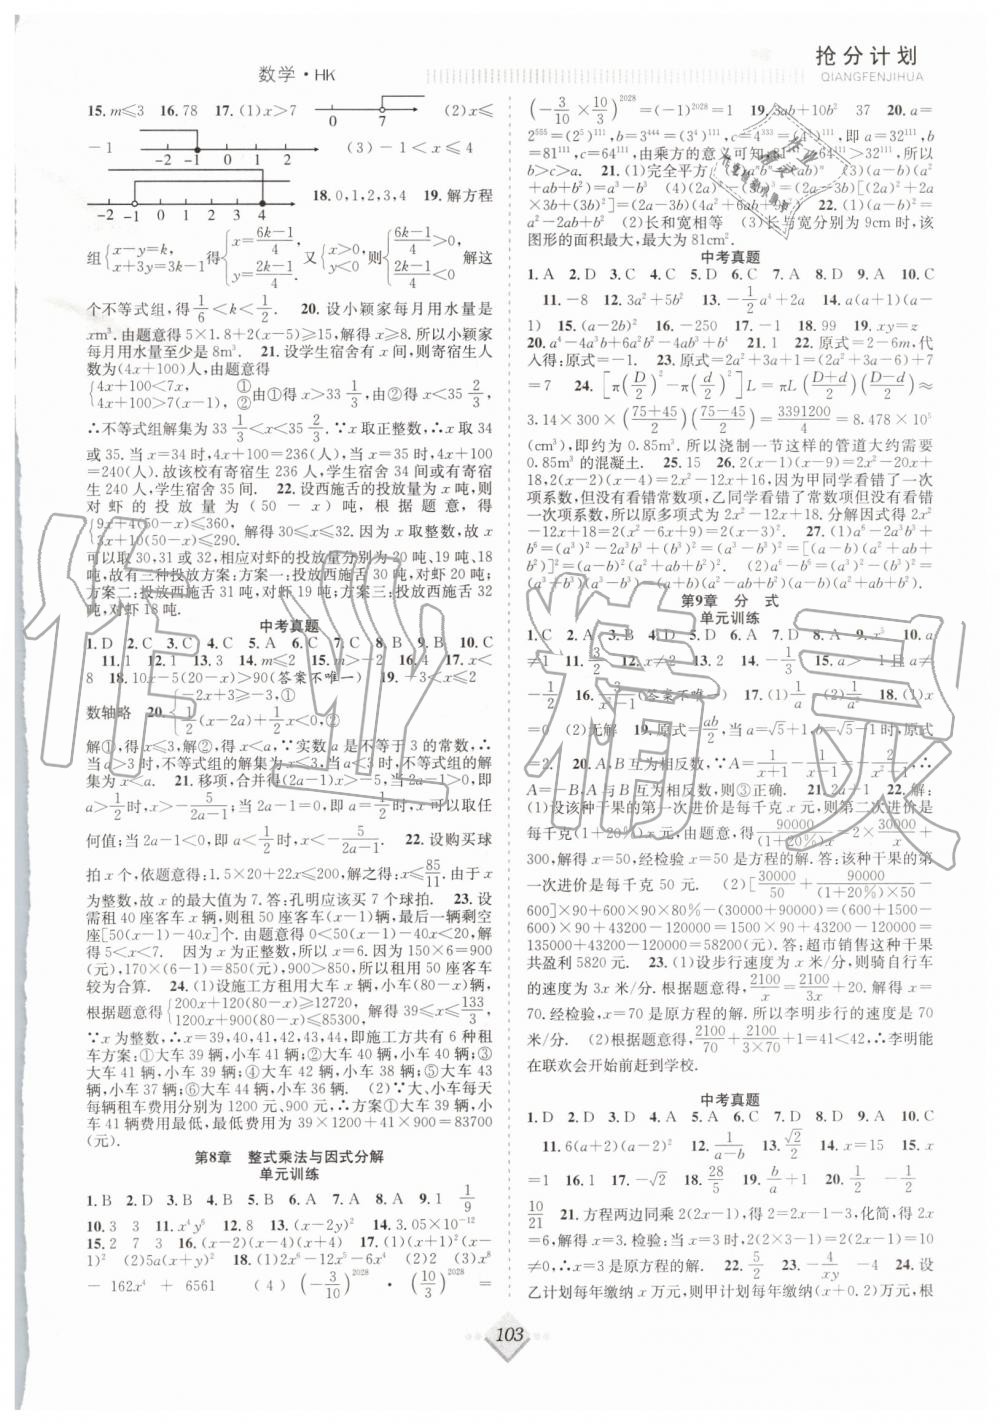 数学·HK
抢分计划
QIANGFENJIHUA
15. m⩽3 16. 78 17. (1)x>7
0 7
(2)x⩽
-1
-2 -1 0 1 2
(3)-1<x⩽4
-2 -1 0 1 2 3 4
18. 0,1,2,3,4 19. 解方程
组{x-y=k, x+3y=3k-1 得{x=(6k-1)/4 y=(2k-1)/4. 又{x>0, y<0, 则{(6k-1)/4>0, (2k-1)/4<0 解这
个不等式组,得1/6<k<1/2. 20. 设小颖家每月用水量是
xm³. 由题意得5×1.8+2(x-5)⩾15,解得x⩾8. 所以小颖家
每月用水量至少是8m³. 21. 设学生宿舍有x间,则寄宿生人
数为(4x+100)人,由题意得
{4x+100<7x, ① 4x+100>7(x-1), ② 由①得x>33 1/3,由②得x<35 2/3
∴不等式组解集为33 1/3<x<35 2/3. ∵x取正整数,∴x取34
或35. 当x=34时,4x+100=236(人),当x=35时,4x+100
=240(人). 故该校有寄宿生236人,学生宿舍34间或有寄宿
生240人,学生宿舍35间. 22. 设西施舌的投放量为x吨,则
对虾的投放量为(50-x)吨,根据题意,得
{9x+4(50-x)⩽360, 3x+10(50-x)⩽290. 解得30⩽x⩽32. 因为x取整数,故x
可以取30,31或32,相应对虾的投放量分别为20吨、19吨、18
吨,故有三种投放方案:方案一:投放西施舌30吨,对虾20吨;方
案二:投放西施舌31吨,对虾19吨;方案三:投放西施舌32
吨,对虾18吨.
中考真题
1. D 2. C 3. C 4. C 5. A 6. C 7. C 8. B 9. B 10. C
11. 1 12. 1 13. 3 14. m⩽2 15. m>-2 16. 4 17. x<
8 18. 10x-5(20-x)>90(答案不唯一) 19. -3<x⩽2
数轴略 20. {-2x+3⩾-3,① 1/2(x-2a)+1/2x<0,②
解①得:x⩽3,解②得:x<a, ∵实数a是不等于3的常数,∴
当a>3时,不等式组的解集为x⩽3,当a<3时,不等式组的解
集为x<a. 21. 移项,合并得(2a-1)x>-5,当2a-1>0,即
a>1/2时,x>-5/(2a-1);当2a-1=0,即a=1/2时,x可以取任
何值;当2a-1<0即a<1/2时,x<-5/(2a-1). 22. 设购买球
拍x个,依题意得:1.5×20+22x⩽200,解得:x⩽85/11. 由于x
为整数,故x的最大值为7. 答:孔明应该买7个球拍. 23. 设
需租40座客车x辆,则租50座客车(x-1)辆,最后一辆剩空
座[50(x-1)-40x]个. 由题意得0<50(x-1)-40x<20,解得
5<x<7. 因为x为正整数,所以x=6. 因为150×6=900
(元),170×(6-1)=850(元),900>850,所以租用50座客车
较为合算. 24. (1)设施工方租用大车x辆,小车(80-x)辆,
根据题意得{200x+120(80-x)⩾12720, 1200x+900(80-x)⩽83700 解得39⩽x⩽133/3,
∵x为整数,∴x=39,40,41,42,43,44,即施工方共有6种租
车方案:①大车39辆,小车41辆;②大车40辆,小车40辆;③
大车41辆,小车39辆;④大车42辆,小车38辆;⑤大车43
辆,小车37辆;⑥大车44辆,小车36辆. (2)∵大、小车每天
每辆租车费用分别为1200元、900元,∴方案①大车39辆,小
车41辆费用最低,最低费用为39×1200+41×900=83700
(元).
第8章 整式乘法与因式分解
单元训练
1. B 2. D 3. D 4. B 5. B 6. D 7. A 8. A 9. 1 1/9
10. 3 3 11. x⁴y⁶ 12. 8 13. (x-2y)² 14. 3.05×10⁻¹²
15. 2 7 3 16. (x-2)(x-4)(x+4) 17. (1)(x+1)²(x-
1)² (2)5a(x+y)² 18. (1)2x⁶-12x⁵-6x⁴ (2)2 (3)x⁸
-162x⁴+6561 (4)(-3/10)²⁰²⁸·(10/3)²⁰²⁸=
(-3/10×10/3)²⁰²⁸=(-1)²⁰²⁸=1 19. 3ab+10b² 37 20. a=
2⁵⁵⁵=(2⁵)¹¹¹,b=3⁴⁴⁴=(3⁴)¹¹¹,c=4³³³=(4³)¹¹¹,即a=32¹¹¹,b=
81¹¹¹,c=64¹¹¹,由乘方的意义可知:81¹¹¹>64¹¹¹>32¹¹¹. 所以
b>c>a. 21. (1)完全平方
图形的面积最大,最大为81cm².
中考真题
1. A 2. D 3. C 4. C 5. D 6. C 7. A 8. C 9. A 10. C
11. -8 12. 3a²+5b² 13. -1/2a⁴+2a 14. a(a+1)(a-
1) 15. (a-2b)² 16. -250 17. -1 18. 99 19. xy=z
20. a⁴-4a³b+6a²b²-4ab³+b⁴ 21. 1 22. 原式=2-6m,代
入得:原式=-1. 23. 原式=2a²+3a+1=(2a²+3a-6)+7
=7 24. [π(D/2)²-π(d/2)²]L=πL((D+d)/2)((D-d)/2)≈
3.14×300×((75+45)/2)((75-45)/2)=3391200/4=8.478×10⁵
(cm³),即约为0.85m³. 所以浇制一节这样的管道大约需要
0.85m³的混凝土. 25. 15 26. 2(x-1)(x-9)=2x²-20x+
18,2(x-2)(x-4)=2x²-12x+16,因为甲同学看错了一次
项系数,但没有看错常数项,乙同学看错了常数项但没有看错
一次项系数,所以原多项式为2x²-12x+18. 分解因式得2x²
-12x+18=2(x²-6x+9)=2(x-3)². 27. (1)a⁶-2a³b³+
b⁶=(a³)²-2a³b³+(b³)²=(a³-b³)²=[(a-b)(a²+ab+
第9章 分式
单元训练
1. C 2. A 3. B 4. D 5. B 6. D 7. D 8. A 9. x⁵ 10. a
≠1 11. 3/2 12. x≠2 13. 5 14. -3/4 15. a>-1且a≠
-1/2 16. 3/(x-1)(答案不唯一) 17. (1)1/a (2)5/2 18. (1)x
=0 (2)无解 19. 原式=ab/2,当a=√5+1,b=√5-1时,原式
=2. 20. A、B互为相反数,∵A=1/(x+1)-1/(x-1)=-2/(x²-1),∴
A=-B,A与B互为相反数,则③正确. 21. 2 22. 解:
(1)设该种干果的第一次进价是每千克x元,则第二次进价是
每千克(1+20%)x元. 由题意,得9000/((1+20%)x)=2×3000/x+
300,解得x=50,经检验x=50是方程的解. 答:该种干果的第
一次进价是每千克50元. (2)[3000/50+9000/((1+20%)×50)-
600]×90+600×90×80%-(3000+9000)=(600+1500-
600)×90+43200-120000=1500×90+43200-120000=
135000+43200-120000=58200(元). 答:超市销售这种干果
共盈利5820元. 23. (1)设步行速度为x米/分,则骑自行车
的速度为3x米/分. 根据题意得,2100/x=2100/3x+20. 解得x=
70. 经检验x=70是原方程的解. 所以李明步行的速度是70
米/分. (2)根据题意得,2100/70+2100/(3×70)+1=41<42,∴李明能
在联欢会开始前赶到学校.
中考真题
1. D 2. D 3. D 4. A 5. A 6. D 7. B 8. A 9. A 10. C
11. 6(a+2)(a-2)² 12. 1/(a-b) 13. √2/2 14. x=15 15. x
=1 16. 1 17. -√2 18. 28/5 19. b/a x=1 20. 1/2
10/21 21. 方程两边同乘2(2x-1),得2=2x-1-3,化简,得2x
=6. 解得x=3. 检验:当x=3时,2(2×3-1)=2(2×3-1)
≠0,∴x=3是原方程的解. 22. 5/2 23. -4/xy 24. 设
乙计划每年缴纳x万元,则甲计划每年缴纳(x+0.2)万元,根
103
作业精灵